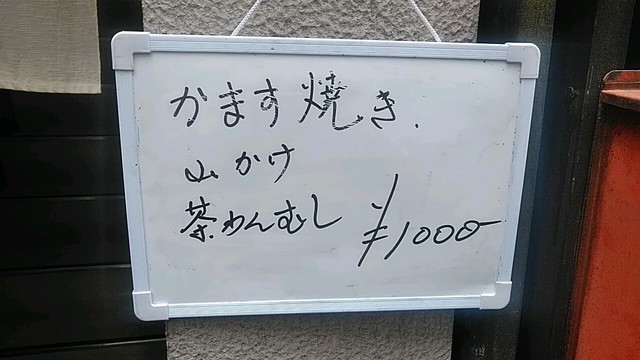 かます焼き.
山かけ
茶わんむし ¥1000-